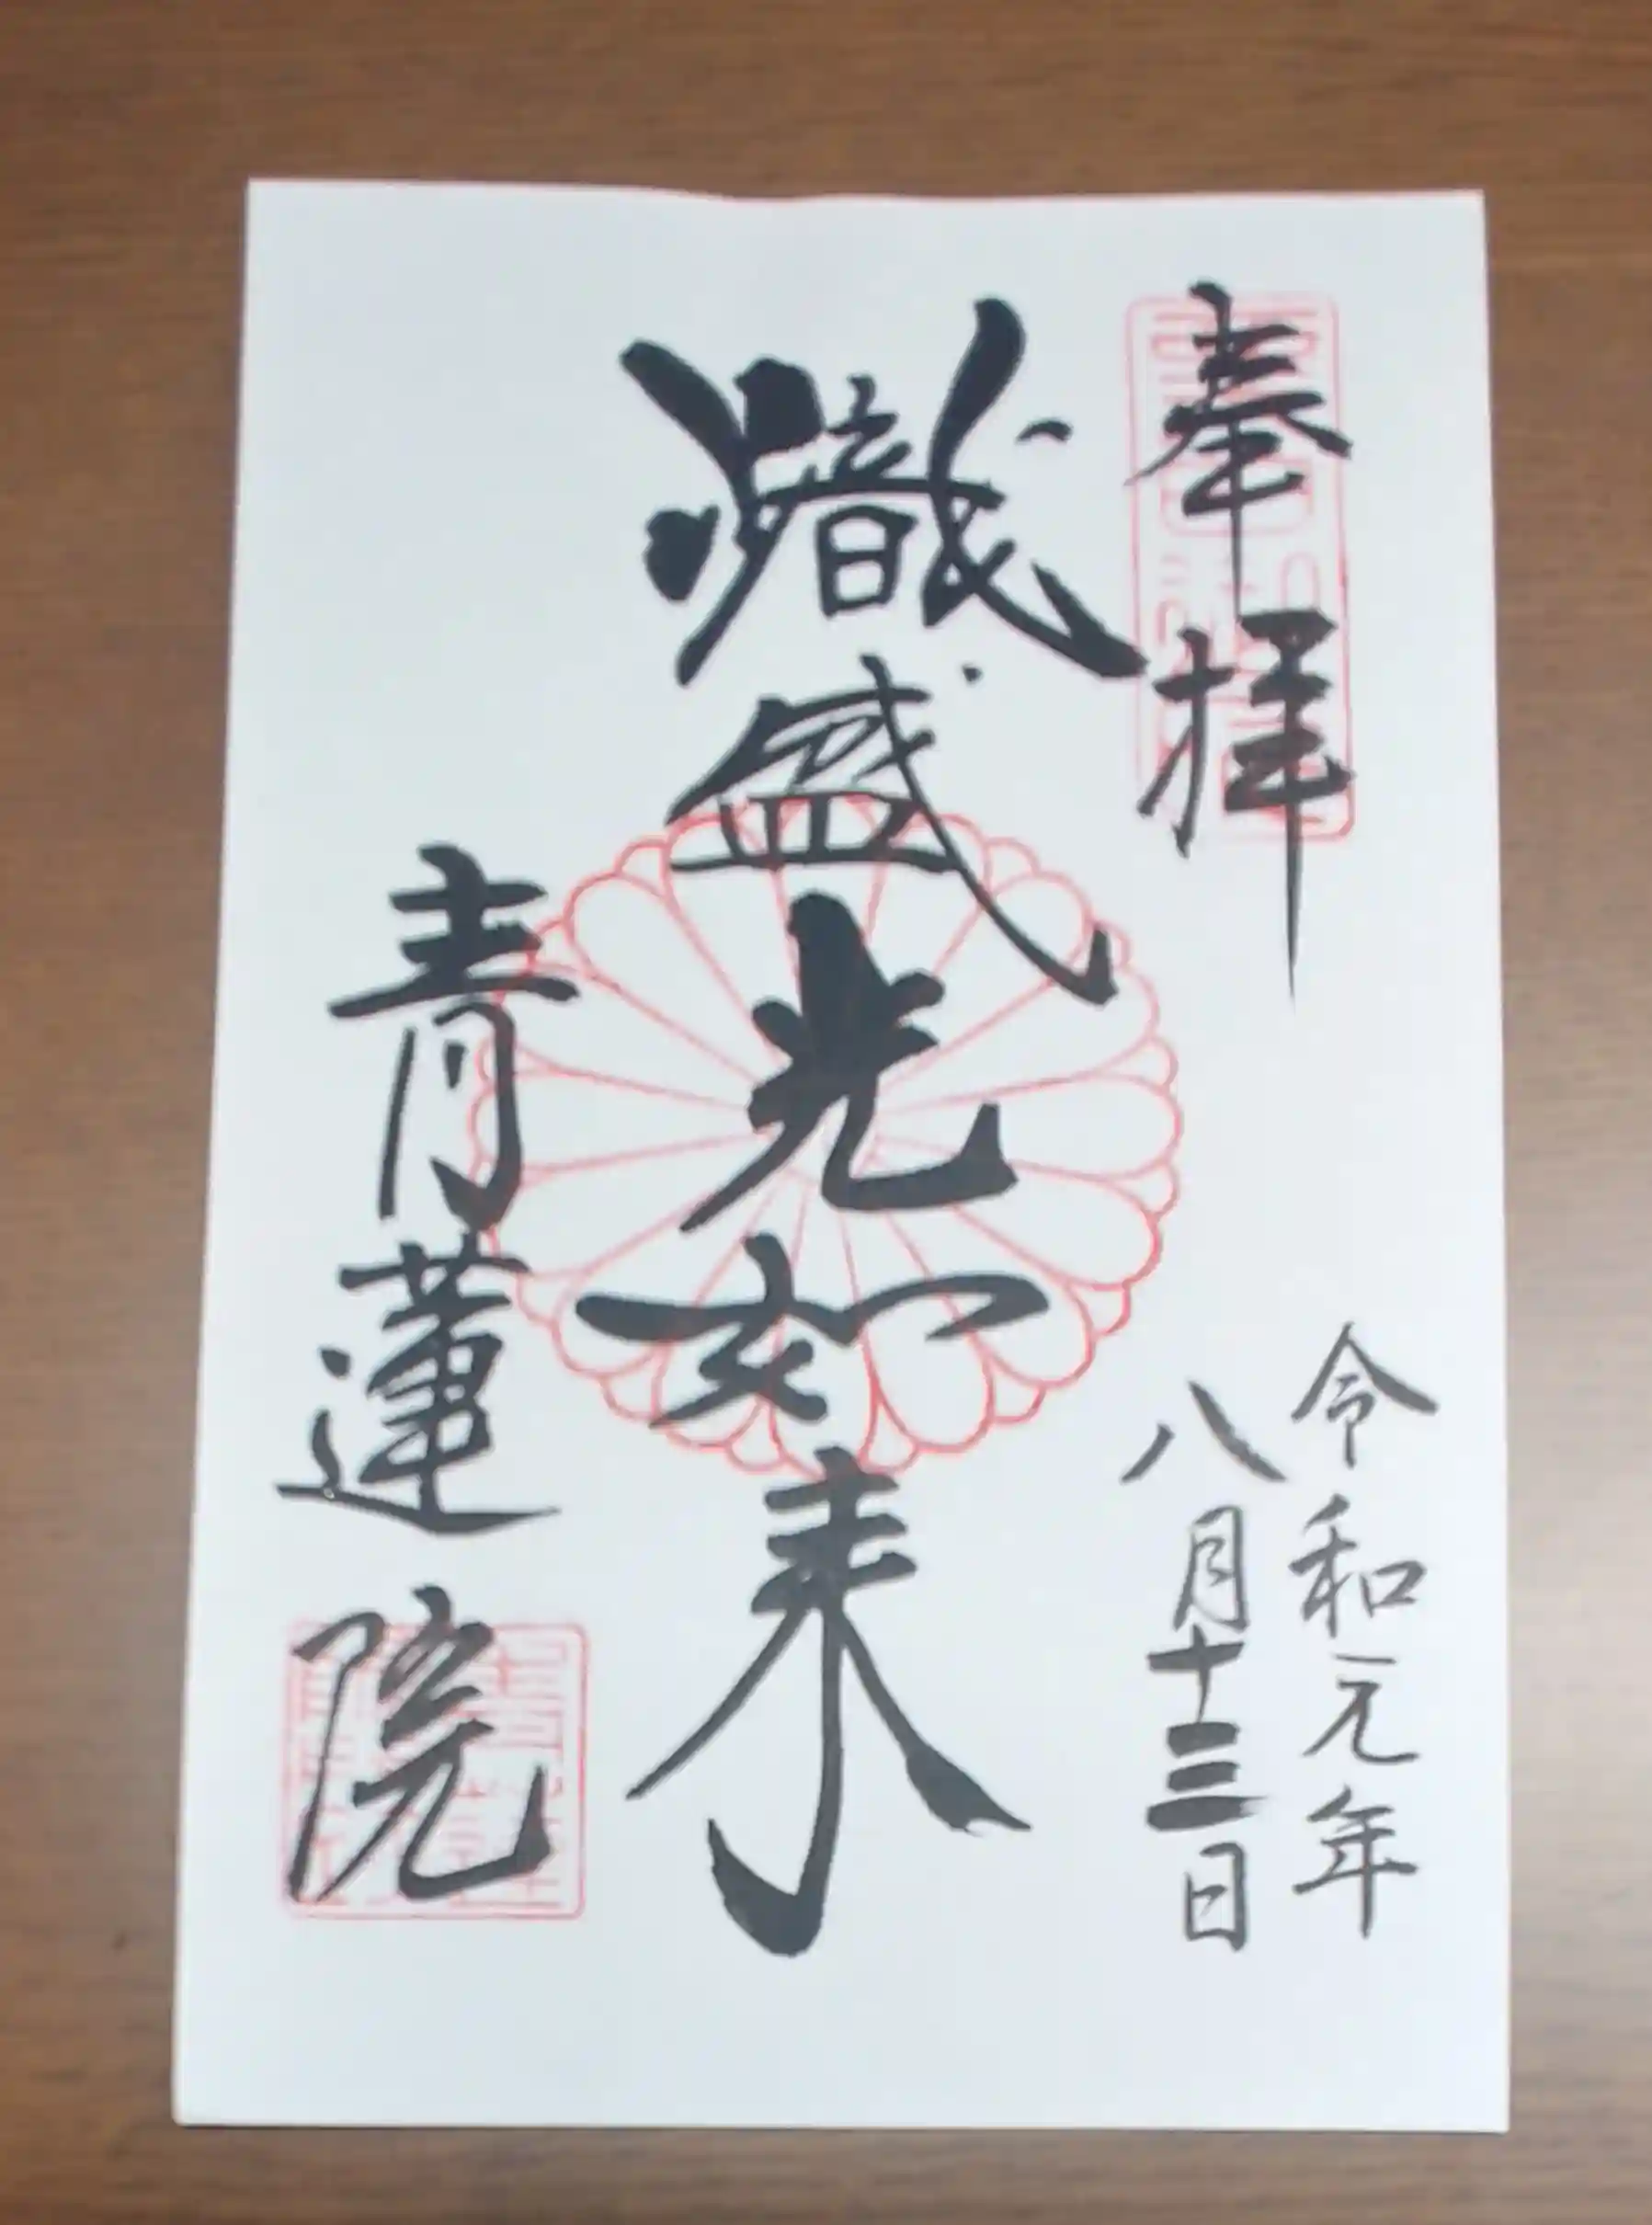 奉拝
令和元年
八月十三日
熾盛光如来
青蓮院